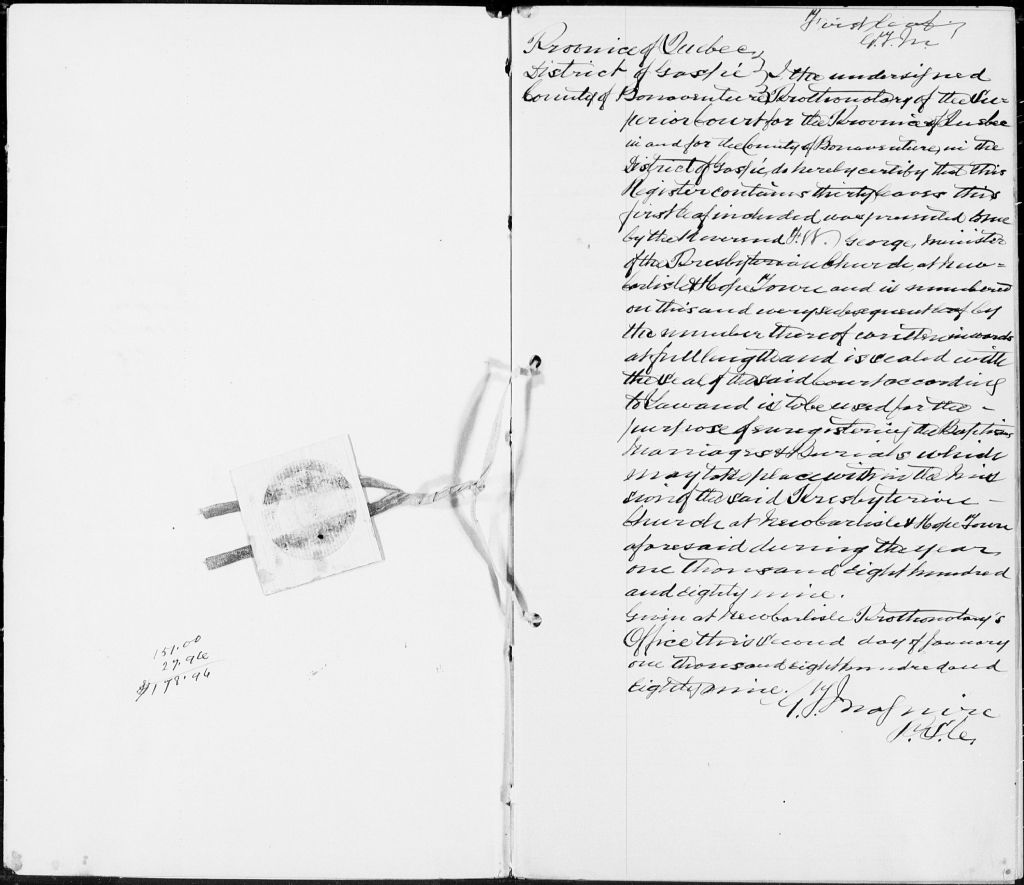 151.00
27.96
$178.96
First leaf
Province of Quebec
District of Gaspé } I the undersigned
County of Bonaventure } Prothonotary of the Su-
perior Court for the Province of Quebec
in and for the County of Bonaventure, in the
District of Gaspé, do hereby certify that this
Register contains thirty leaves this
first leaf included was presented to me
by the Reverend F. W. George, Minister
of the Presbyterian Church at New-
Carlisle & Hope Town and is numbered
on this and every subsequent leaf by
the number thereof written in words
at full length and is sealed with
the seal of the said Court according
to Law and is to be used for the -
purpose of enregistering the Baptisms
Marriages & Burials which
may take place within the Mis
sion of the said Presbyterian -
Church at New Carlisle & Hope Town
aforesaid during the year
one thousand eight hundred
and eighty nine.
Given at New Carlisle Prothonotary's
Office this second day of January
one thousand eight hundred and
eighty nine.
Maguire
P.S.C.